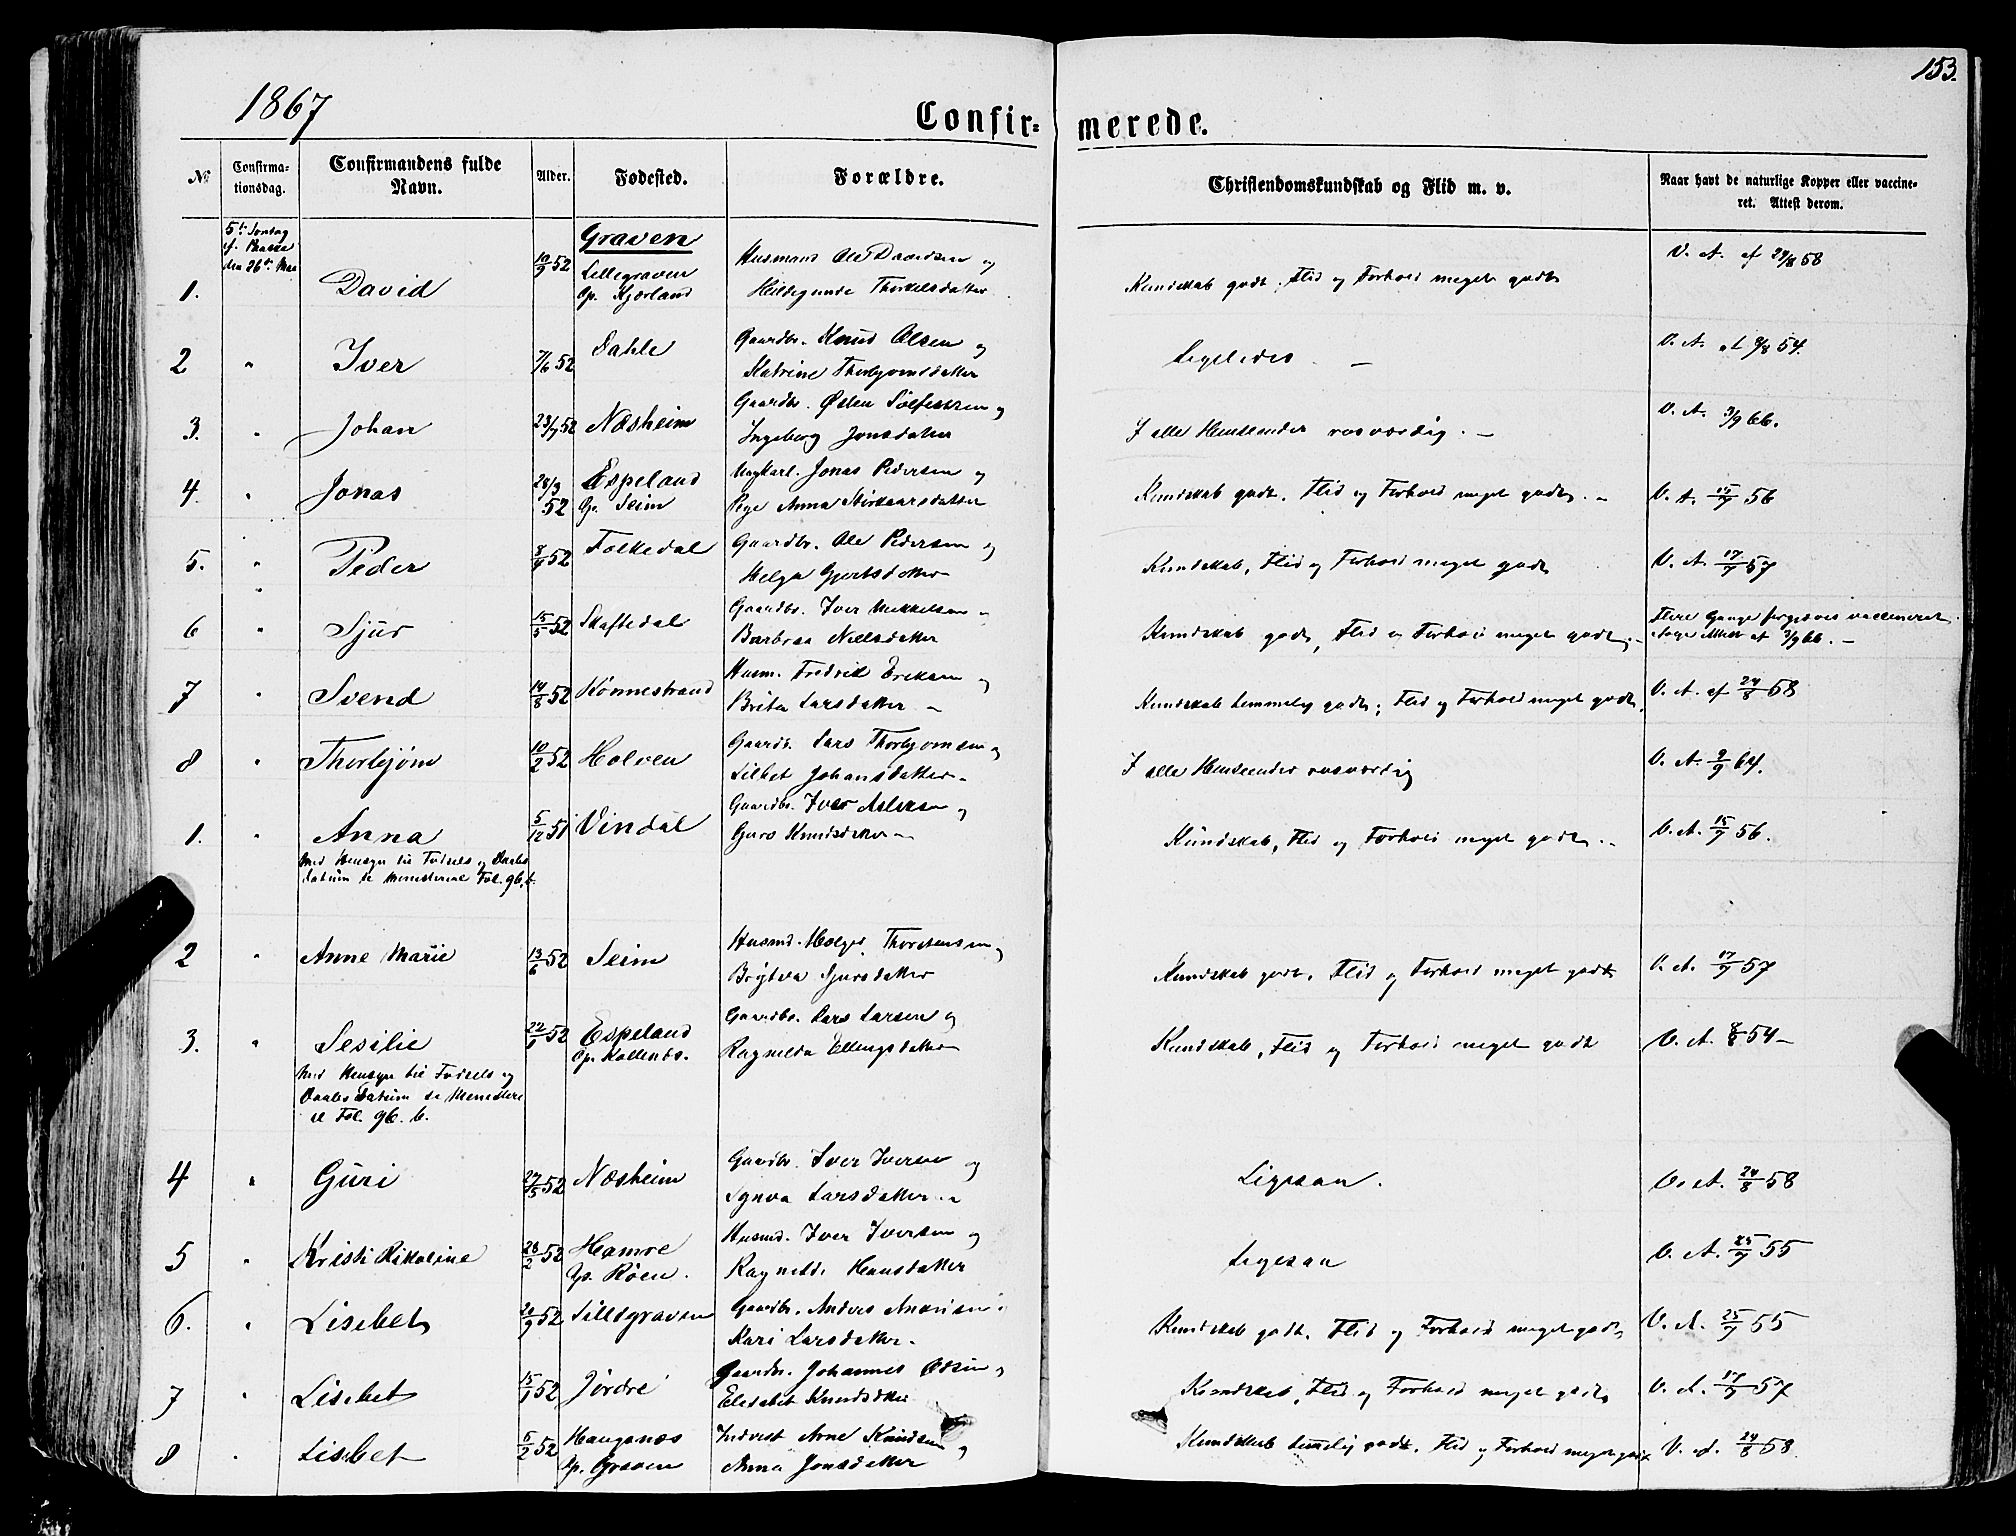 153.
1867
Confir-
merede.
No
Confirma-
tionsdag.
Confirmandens fulde
Navn.
Alder.
Fødested.
Forældre.
Christendomskundskab og Flid m. v.
Naar havt de naturlige Kopper eller vaccine-
ret. Attest derom.
5te Søndag
e. Paaske
den 26de Mai
Graven
1. David 10/9 52 Lillegraven
Op. Kjerland
Husmand Ole Davidsen og
Heldegunda Thorkelsdatter
Kundskab godt. Flid og Forhold meget godt
V. A. af 24/8 58
2 " Iver 7/6 52 Dahle
Gaardbr. Knud Olsen og
Katrine Thorbjørnsdatter
Ligeledes. —
V. A. af 9/8 54.
3. " Johan 23/7 52 Næsheim
Gaardbr. Østen Solfestsen og
Ingeborg Jonsdatter
I alle Henseender rosværdig. —
V. A. 3/9 66.
4. " Jonas 28/3 52 Espeland
Op. Seim
Ungkarl. Jonas Pedersen og
Pige Anna Styrkaarsdatter
Kundskab godt. Flid og Forhold meget godt. —
V. A. 15/7 56
5. " Peder 8/9 52 Folkedal
Gaardbr. Ole Pedersen og
Helga Gjertsdatter
Kundskab, Flid og Forhold meget godt
V. A. 17/7 57
6 " Sjur 15/5 52 Skaftedal
Gaardbr. Iver Mikkelsen "
Barbraa Nielsdatter
Kundskab godt, Flid og Forhold meget godt. —
Flere Gange forgjæves vaccineret
Attest af 3/9 66. —
7 " Svend 14/8 52 Kønnestrand
Husm. Fredrik Eriksen og
Brita Larsdatter —
Kundskab temmelig godt; Flid og Forhold meget godt.
V. A. af 24/8 58
8 " Thorbjørn 10/2 52 Holven
Gaardb. Lars Thorbjørnsen og
Lisbet Johansdatter —
I alle Henseender rosværdig
V. A. 9/9 64.
1. " Anna 5/12 51 Vindal
Gaardbr. Iver Aslaksen og
Guro Knudsdatter —
Kundskab, Flid og Forhold meget godt. —
V. A. 15/7 56.
Med Hensyn til Fødsels og Daabs
datum se Ministerial Fol. 96, b.
2 " Anne Marie 13/6 52 Seim
Husmd. Holger Thorstensen og
Brytva Sjursdatter
Kundskab godt. Flid og Forhold meget godt
V. A. 17/7 57
3. " Sesilie 22/1 52 Espeland
Op. Kollenes.
Gaardbr. Lars Larsen og
Ragnilda Ellingsdatter
Kundskab, Flid og Forhold meget godt
V. A. 8/8 54 —
Med Hensyn til Fødsels og
Daabs Datum se Ministeri
al Fol. 96. b.
4 " Guri 27/5 52 Næsheim
Gaardbr. Iver Iversen og
Synva Larsdatter —
Ligesaa.
V. A. 24/8 58
5 " Kristi Rikoline 28/2 52 Hamre
Op. Røen.
Husmd. Iver Iversen og
Ragnilda Hansdatter
Ligesaa
V. A. 25/7 55
6. " Lisebet 20/9 52 Lillegraven
Gaardbr. Anders Andersen
Kari Larsdatter.
Kundskab godt. Flid og Forhold meget godt
V. A. 25/7 55
7 " Lisebet 15/1 52 Jordre
Gaardbr. Johannes Odsen og
Elisabet Knudsdtr
Kundskab, Flid og Forhold meget godt
V. A. 17/7 57
8 " Lisebet 5/2 52 Haugenæs
Op. Graven
Inderst Arne Knudsen og
Anna Jonsdatter
Kundskab temelig godt. Flid og Forhold meget godt
V. A. 24/8 58